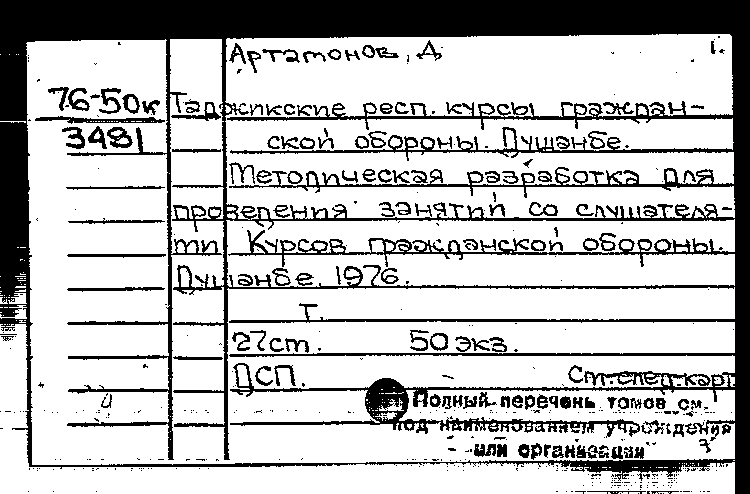 Артамонов, Д 1.
76-50к Таджикские респ. курсы граждан-
3481 ской обороны. Душанбе.
Методическая разработка для
проведения занятий со слушателя-
ми Курсов гражданской обороны.
Душанбе. 1976.
Т.
27ст. 50 экз.
ДСП. См. спец. карт
Полный перечень томов см.
под наименованием учреждения
или организации 3